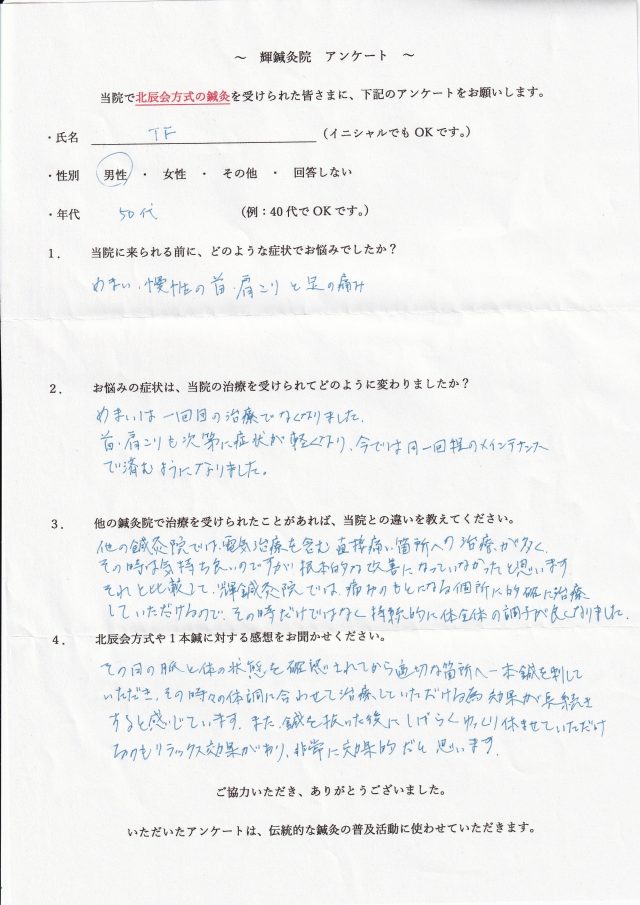 ～ 輝鍼灸院 アンケート ～
当院で北辰会方式の鍼灸を受けられた皆さまに、下記のアンケートをお願いします。
・氏名 TF （イニシャルでもOKです。）
・性別 男性 ・ 女性 ・ その他 ・ 回答しない
・年代 50代 （例：40代でOKです。）
1． 当院に来られる前に、どのような症状でお悩みでしたか？
めまい、慢性の首・肩こりと足の痛み
2． お悩みの症状は、当院の治療を受けられてどのように変わりましたか？
めまいは一回目の治療でなくなりました。
首・肩こりも次第に症状が軽くなり、今では月一回程のメインテナンス
で済むようになりました。
3． 他の鍼灸院で治療を受けられたことがあれば、当院との違いを教えてください。
他の鍼灸院では、電気治療を含む直接痛い箇所への治療が多く、
その時は気持ち良いのですが根本的な改善になっていなかったと思います。
それと比較して、輝鍼灸院では、痛みのもとになる個所に的確に治療
していただけるので、その時だけではなく持続的に体全体の調子が良くなりました。
4． 北辰会方式や1本鍼に対する感想をお聞かせください。
その日の脈と体の状態を確認されてから適切な箇所へ一本鍼を刺して
いただき、その時々の体調に合わせて治療していただける為効果が長続き
すると感じています。また、鍼を抜いた後にしばらくゆっくり休ませていただけ
るのもリラックス効果があり、非常に効果的だと思います。
ご協力いただき、ありがとうございました。
いただいたアンケートは、伝統的な鍼灸の普及活動に使わせていただきます。